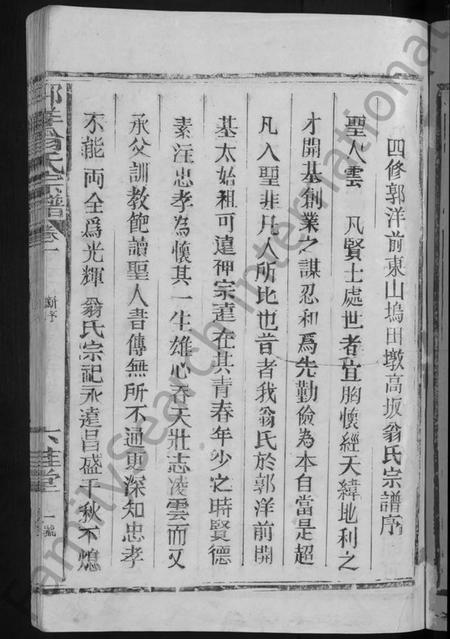 四修郭洋前東山塢田墩高坂翁氏宗譜序
聖人雲 凡賢士處世者宜胸懷經天緯地利之
才開基創業之謀忍和爲先勤儉為本自當是超
凡入聖非凡人所比也昔者我翁氏於郭洋前開
基太始祖可達神宗達在其青春年少之時賢德
素注忠孝為懷其一生雄心吞天壯志凌雲而又
承父訓教飽讀聖人書傳無所不通更深知忠孝
不能両全爲光輝 翁氏宗祀永達昌盛千秋不熄
郭洋翁氏宗譜 卷一 新序 六桂堂 一號
FamilySearch International